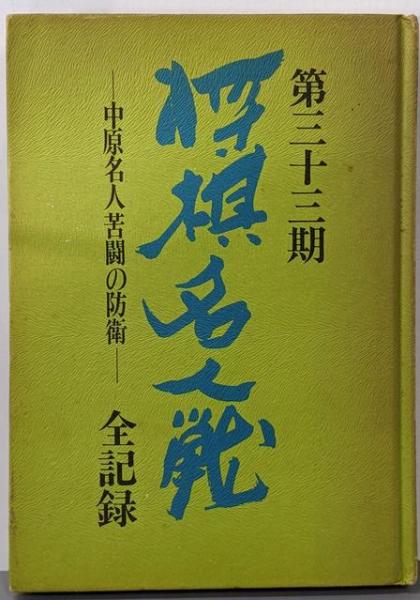 第三十三期
将棋名人戦
―中原名人苦闘の防衛―
全記録